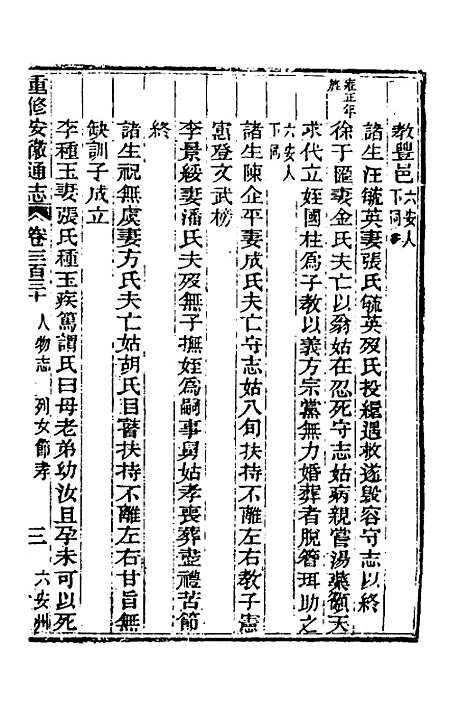 敎豐邑六安人下同
諸生汪毓英妻張氏毓英歿氏投繯遇救遂毀容守志以終
雍正年旌
徐于匯妻金氏夫亡以翁姑在忍死守志姑病親嘗湯藥籲天
求代立姪國柱爲子敎以義方宗黨無力婚葬者脫簪珥助之
六安人下同
諸生陳企平妻成氏夫亡守志姑八旬扶持不離左右敎子憲
憲登文武榜
李景綏妻潘氏夫歿無子撫姪爲嗣事舅姑孝喪葬盡禮苦節
終
諸生祝無虞妻方氏夫亡姑胡氏目瞽扶持不離左右甘旨無
缺訓子成立
李種玉妻張氏種玉疾篤謂氏曰母老弟幼汝且孕未可以死
重修安徽通志 卷三百三十 人物志 列女節孝 三 六安州